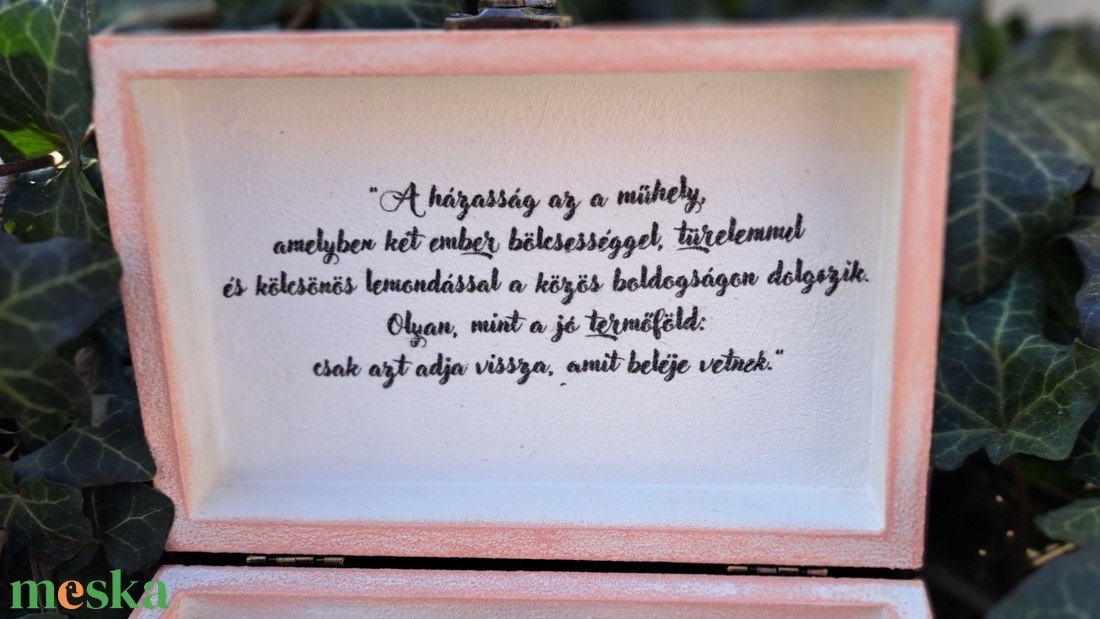 "A házasság az a műhely,
amelyben két ember bölcsességgel, türelemmel
és kölcsönös lemondással a közös boldogságon dolgozik.
Olyan, mint a jó termőföld:
csak azt adja vissza, amit beléje vetnek."
meska